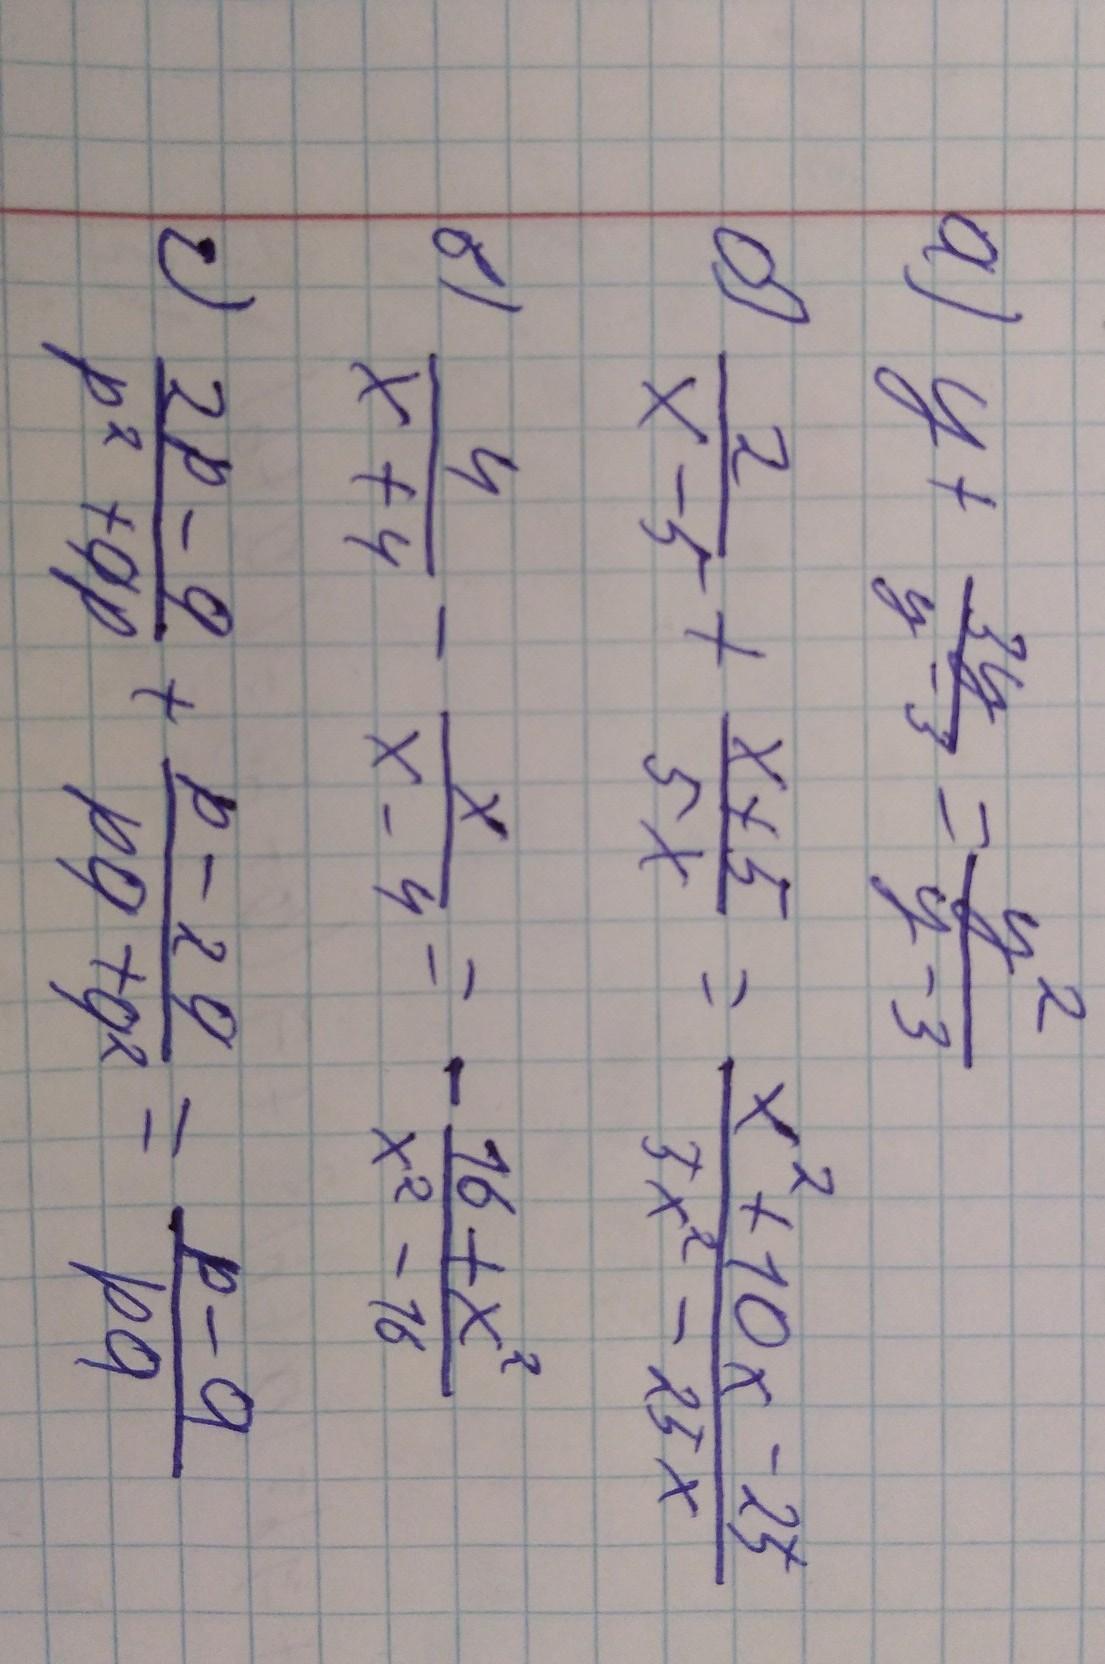 а) y + 3y/(y-3) = y²/(y-3)
б) 2/(x-5) + (x+5)/5x = (x²+10x-25)/(5x²-25x)
в) 4/(x+4) - x/(x-4) = - (16+x²)/(x²-16)
г) (2p-q)/(p²+qp) + (p-2q)/(pq+q²) = (p-q)/pq